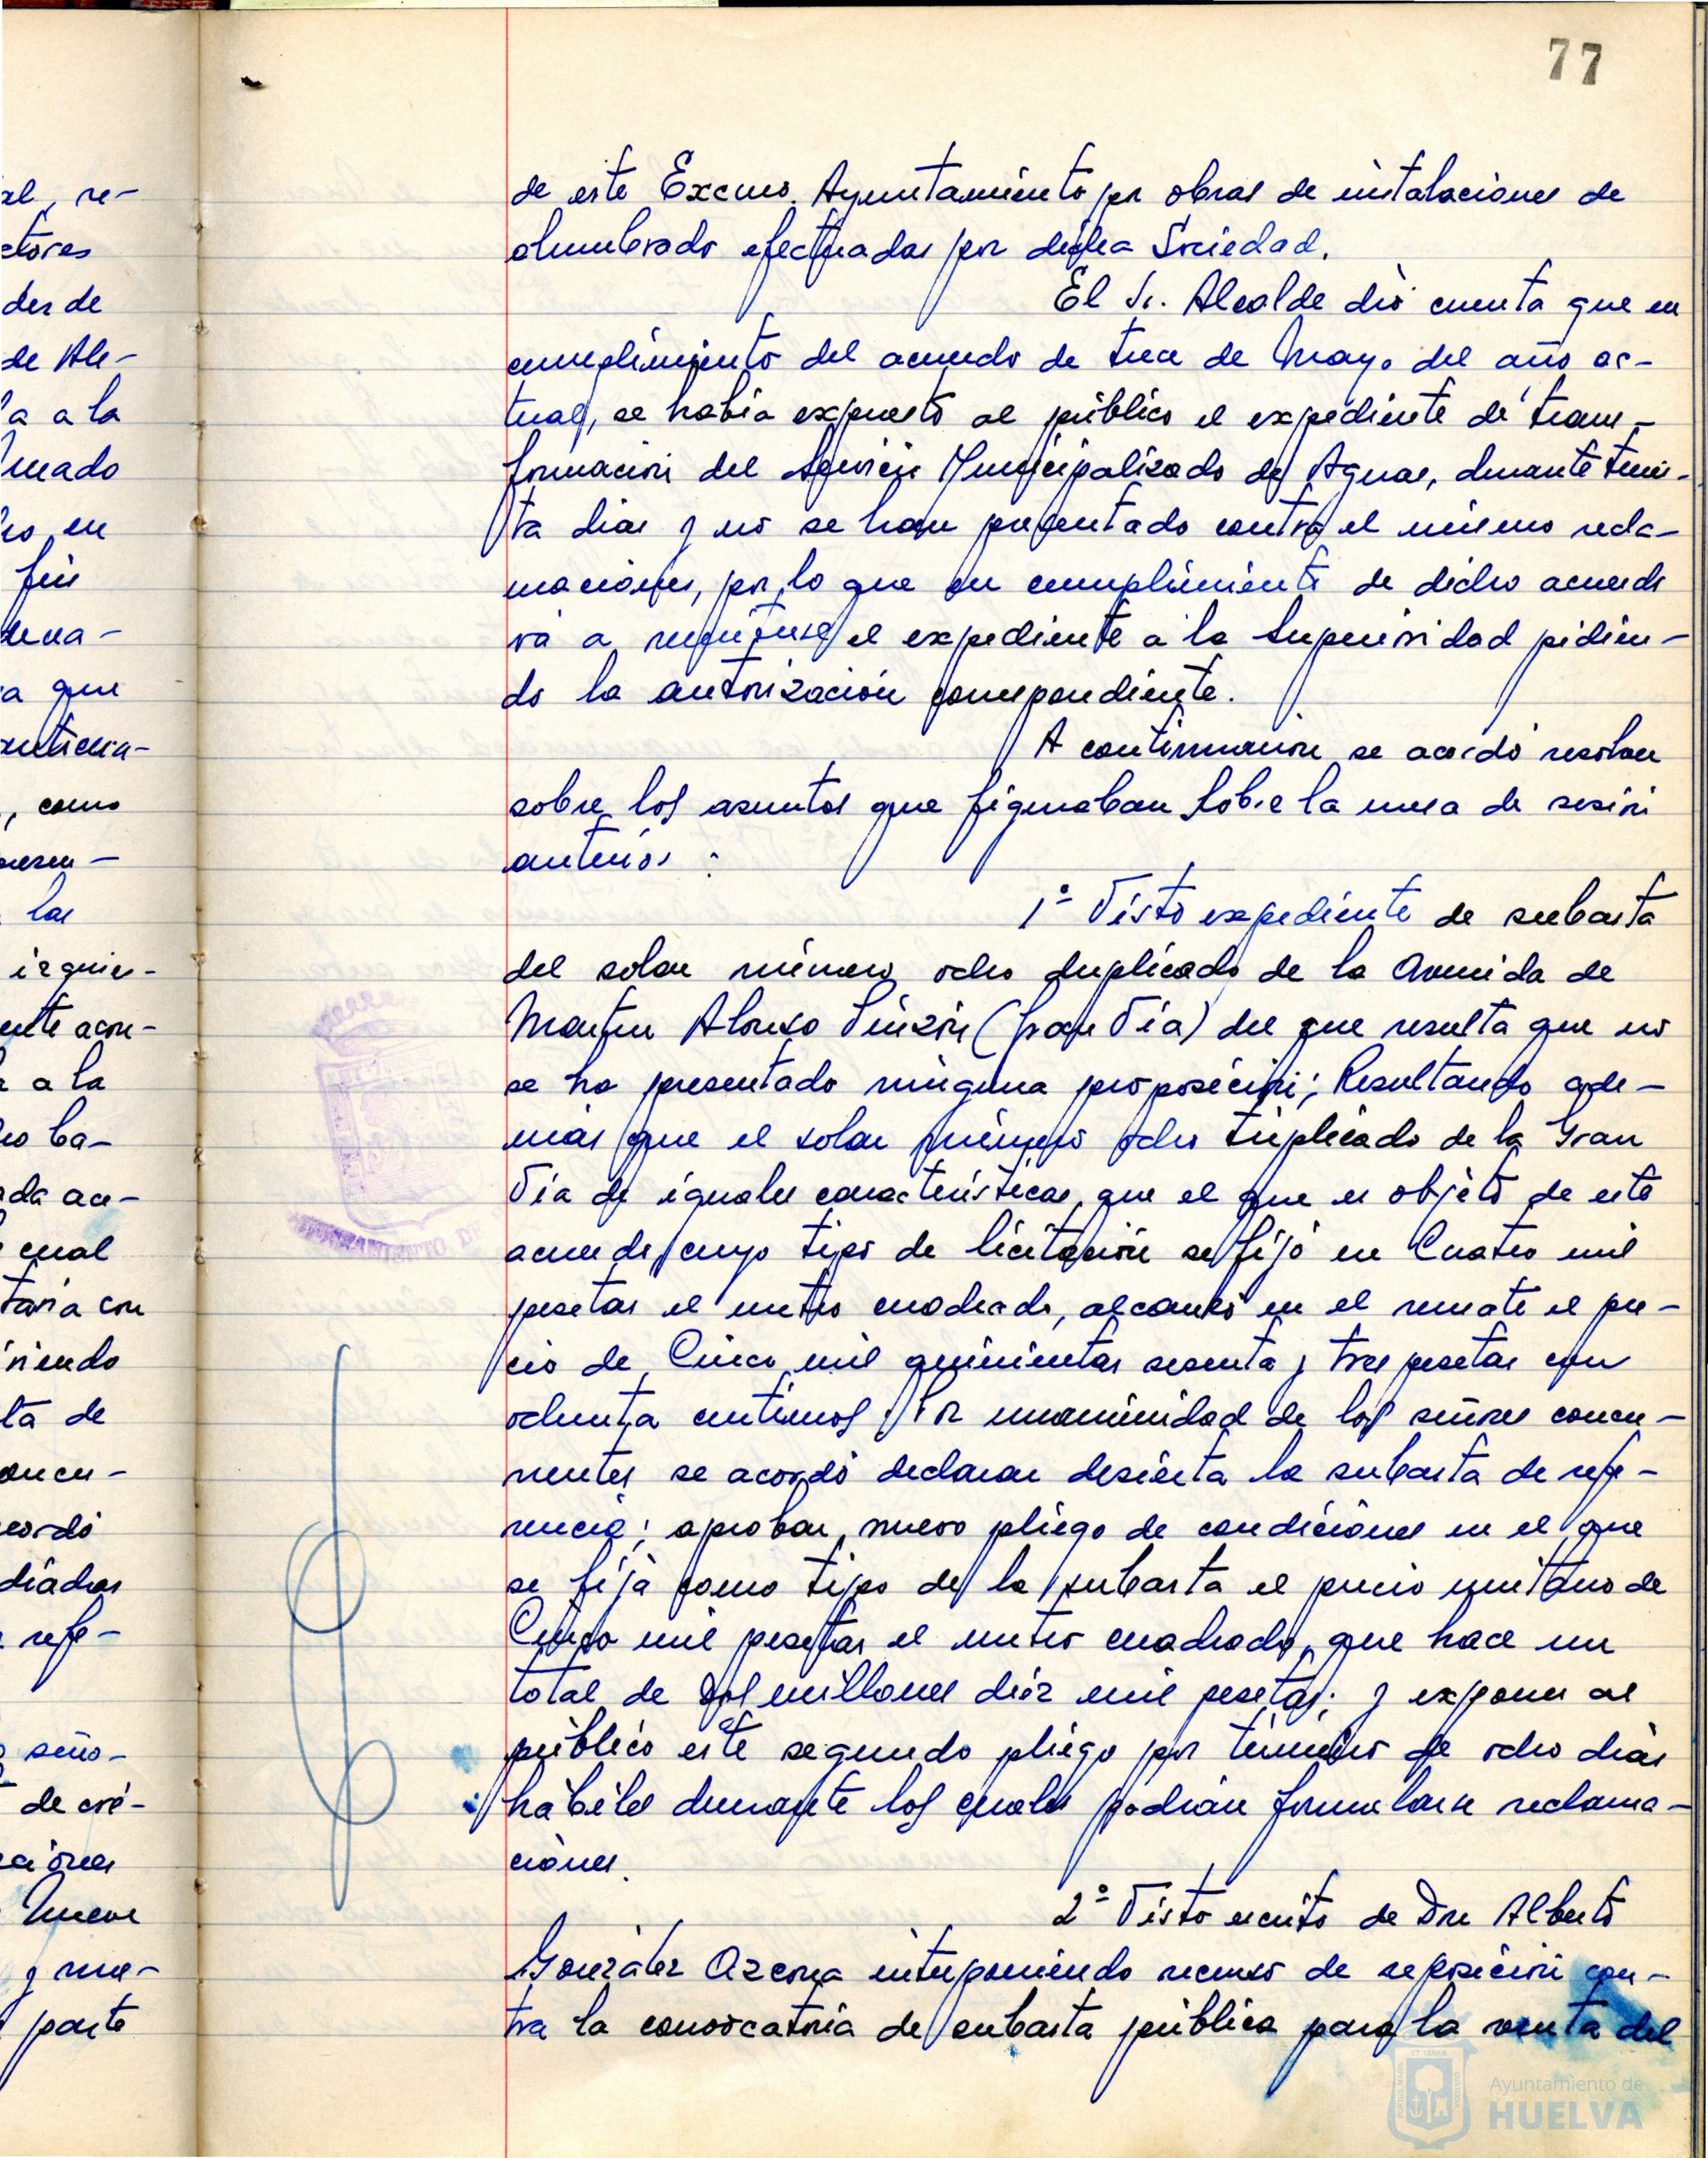 77
de este Excmo. Ayuntamiento por obras de instalaciones de
alumbrado efectuadas por dicha Sociedad.
El Sr. Alcalde dió cuenta que en
cumplimiento del acuerdo de trece de Mayo del año ac-
tual, se había expuesto al público el expediente de trans-
formación del Servicio Municipalizado de Aguas, durante trein-
ta dias y no se han presentado contra el mismo recla-
maciones, por lo que en cumplimiento de dicho acuerdo
va a remitirse el expediente a la Superioridad pidien-
do la autorización correspondiente.
A continuación se acordó resolver
sobre los asuntos que figuraban sobre la mesa de sesión
anterior:
1º Visto expediente de subasta
del solar número ocho duplicado de la Avenida de
Martin Alonso Pinzón (Gran Via) del que resulta que no
se ha presentado ninguna proposición; Resultando ade-
más que el solar número ocho triplicado de la Gran
Via de iguales características, que el que es objeto de este
acuerdo, cuyo tipo de licitación se fijó en Cuatro mil
pesetas el metro cuadrado, alcanzó en el remate el pre-
cio de Cinco mil quinientas sesenta y tres pesetas con
ochenta centimos. Por unanimidad de los señores concu-
rrentes se acordó declarar desierta la subasta de refe-
rencia; aprobar nuevo pliego de condiciones en el que
se fija como tipo de la subasta el precio unitario de
Cinco mil pesetas el metro cuadrado, que hace un
total de dos millones diez mil pesetas; y exponer al
público este segundo pliego por término de ocho dias
hábiles durante los cuales podrán formularse reclama-
ciones.
2º Visto escrito de Don Alberto
González Azcona interponiendo recurso de reposición con-
tra la convocatoria de subasta pública para la venta del
al, re-
ctores
der de
de Ale-
a a la
mado
en
fin
a que
, como
las
izquier-
a la
ba-
cual
taria con
niendo
ta de
oncu-
cordó
refe-
seño-
de cré-
ciones
Nueve
parte
AYUNTAMIENTO DE
Ayuntamiento de
HUELVA